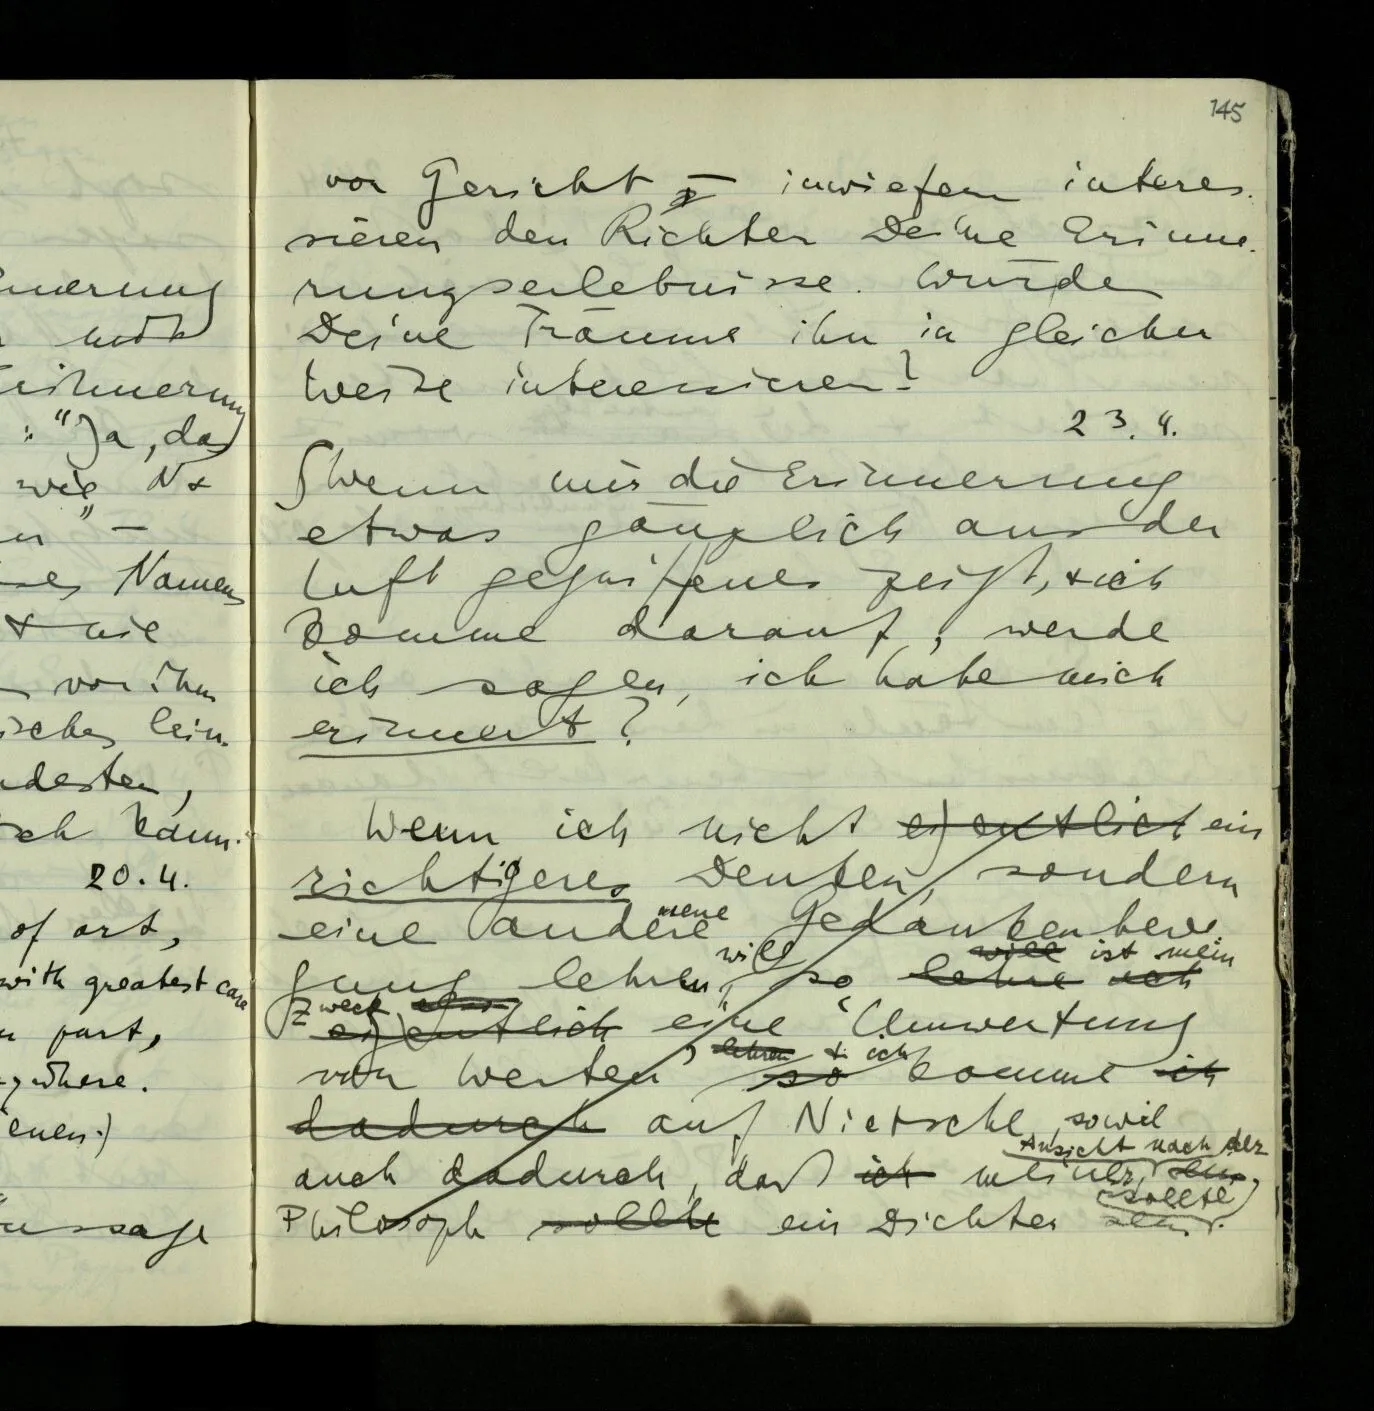 nnerung
nicht
Erinnerung
: "Ja, das
wie N &
en" –
es Namens
& wie
vor ihm
isches lein-
ndesten,
ich kann.
20.4.
of art,
with greatest care
n part,
anywhere.
ienen.)
ussage
145
vor Gericht – inwiefern interes-
sieren den Richter Deine Erinne-
rungserlebnisse. Würden
Deine Träume ihn in gleicher
Weise interessieren?
23.4.
∫ Wenn mir die Erinnerung
etwas gänzlich aus der
Luft gegriffenes zeigt, & ich
komme darauf, werde
ich sagen, ich habe mich
erinnert?
Wenn ich nicht eigentlich ein
richtigeres Denken, sondern
eine andere neue Gedankenbewe-
gung lehren will, so lehre ich will ist mein
Zweck eigentlich eine 'Umwertung
von Werten' lehren so & ich komme ich
dadurch auf Nietzsche, sowie
auch dadurch, daß ich meiner Ansicht nach der
Philosoph sollte ein Dichter sein sollte.